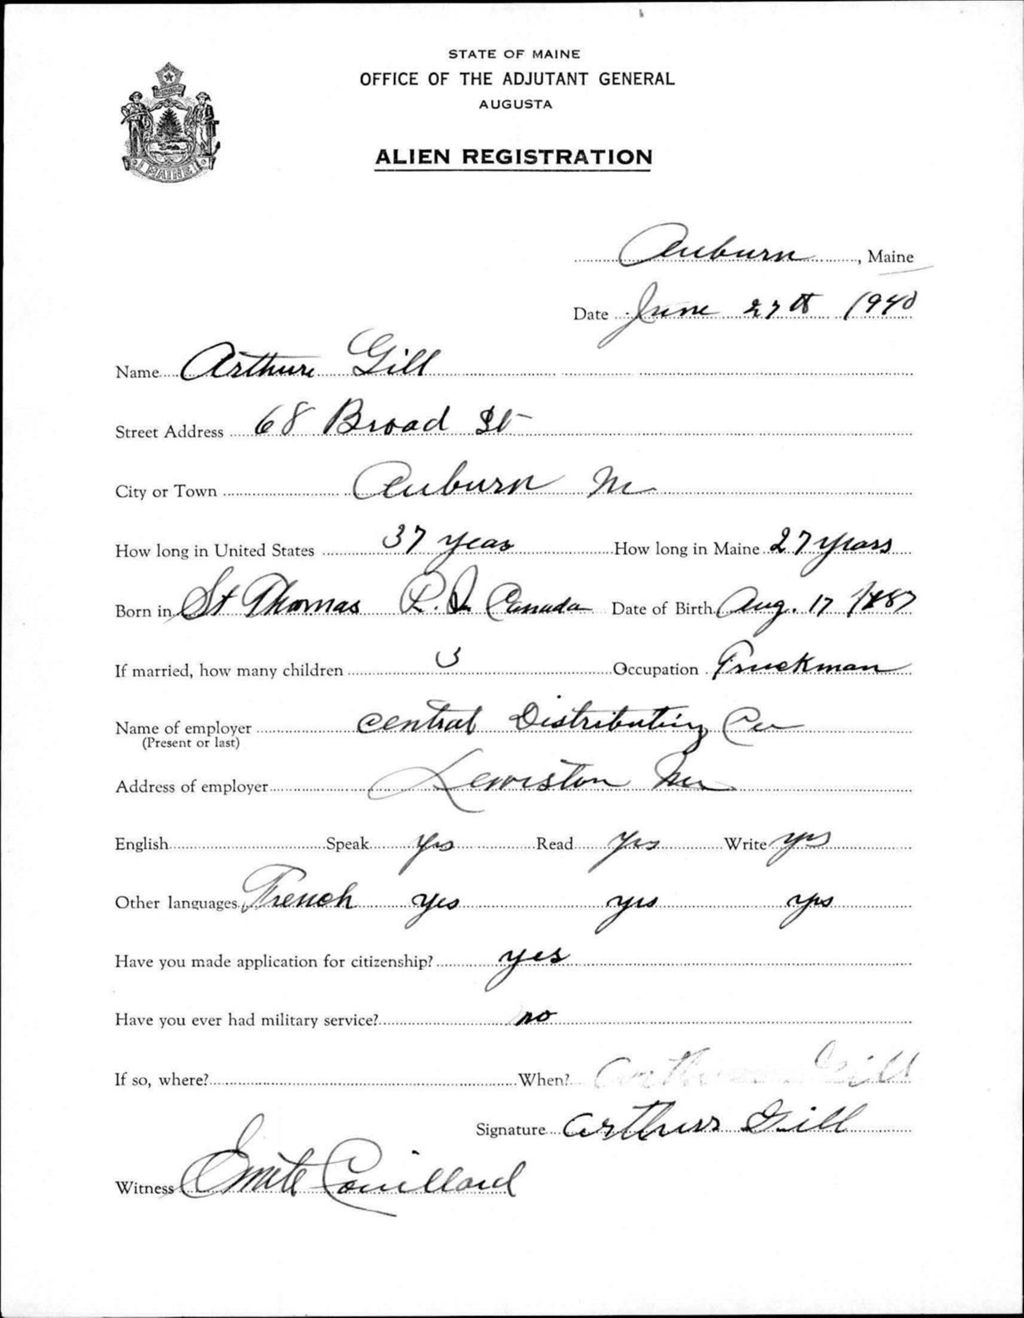 STATE OF MAINE
OFFICE OF THE ADJUTANT GENERAL
AUGUSTA
ALIEN REGISTRATION
MAINE
Auburn, Maine
Date June 27th 1940
Name Arthur Gill
Street Address 68 Broad St
City or Town Auburn Me
How long in United States 37 years How long in Maine 27 years
Born in St Thomas P.Q. Canada Date of Birth Aug. 17 1887
If married, how many children 3 Occupation Truckman
Name of employer Central Distributing Co
(Present or last)
Address of employer Lewiston Me
English Speak yes Read yes Write yes
Other languages French yes yes yes
Have you made application for citizenship? yes
Have you ever had military service? no
If so, where? When? Arthur Gill
Signature Arthur Gill
Witness Emile Couillard